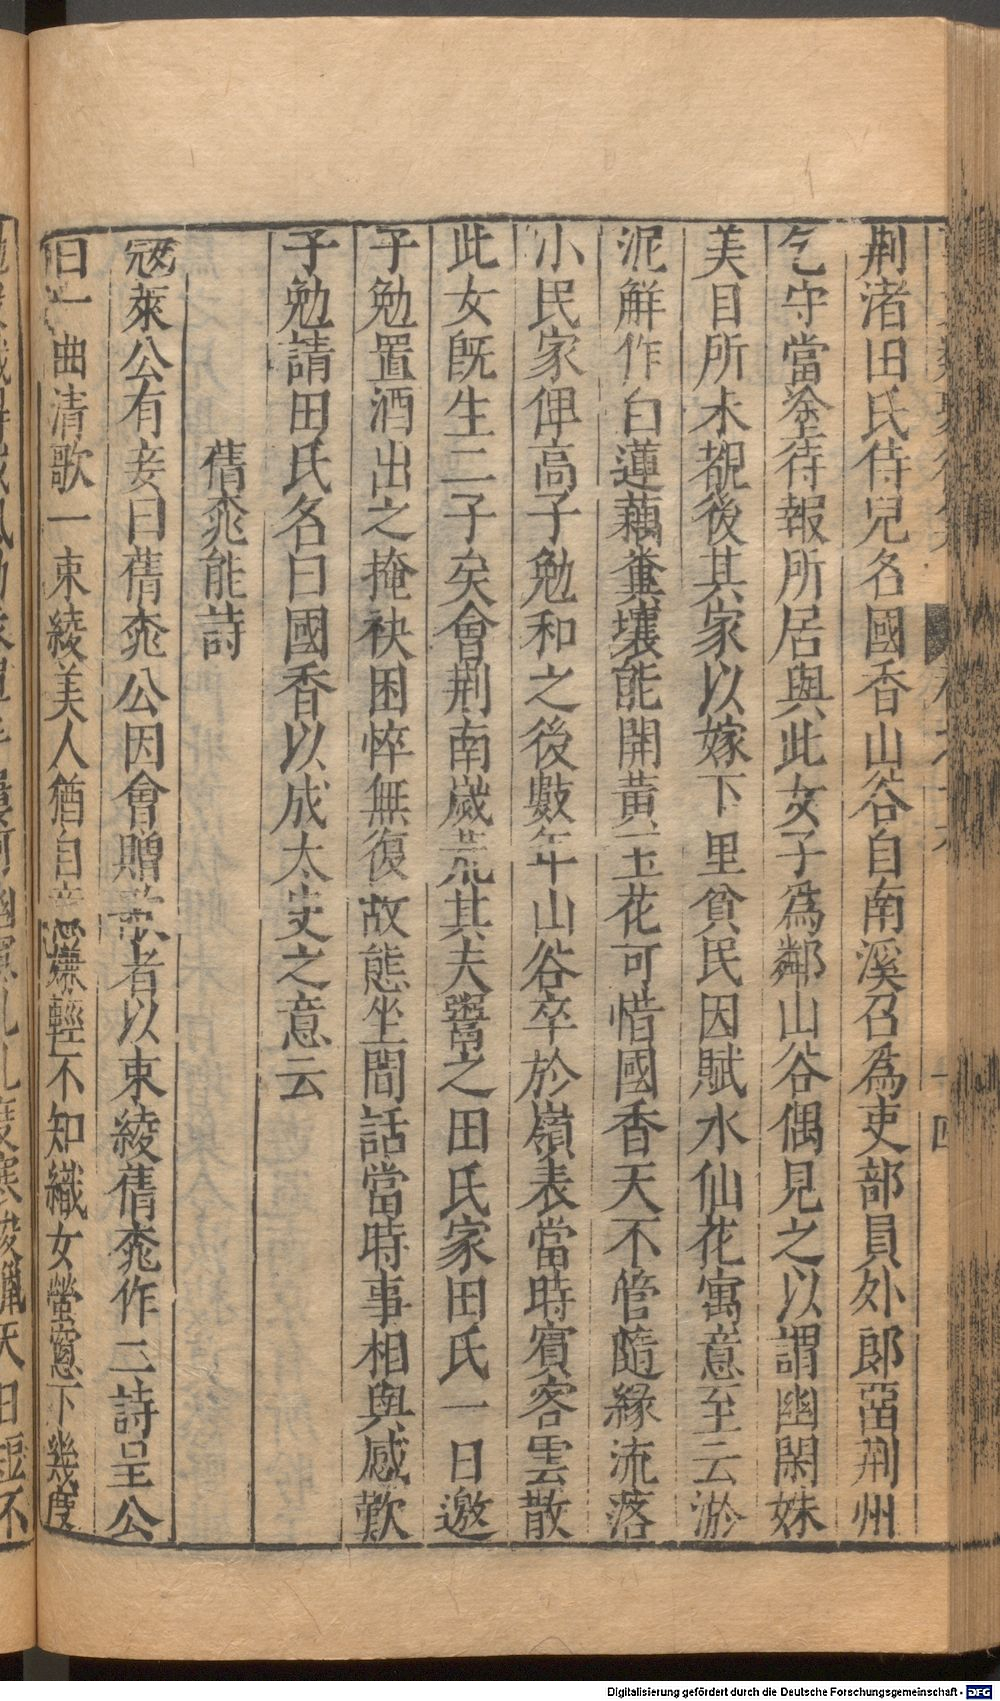 荆渚田氏侍兒名國香山谷自南溪召為吏部員外郎畱荆州
乞守當塗待報所居與此女子為鄰山谷偶見之以謂幽閑姝
美目所未覩後其家以嫁下里貧民因賦水仙花寓意至云淤
泥解作白蓮藕糞壤能開黃玉花可惜國香天不管隨緣流落
小民家俾高子勉和之後數年山谷卒於嶺表當時賓客雲散
此女既生二子矣會荆南歲荒其夫鬻之田氏家田氏一日邀
子勉置酒出之掩袂困悴無復故態坐間話當時事相與感歎
子勉請田氏名曰國香以成太史之意云
蒨桃能詩
寇萊公有妾曰蒨桃公因會贈歌者以束綾蒨桃作二詩呈公
曰一曲清歌一束綾美人猶自意嫌輕不知織女螢窓下幾度
Digitalisierung gefördert durch die Deutsche Forschungsgemeinschaft - DFG